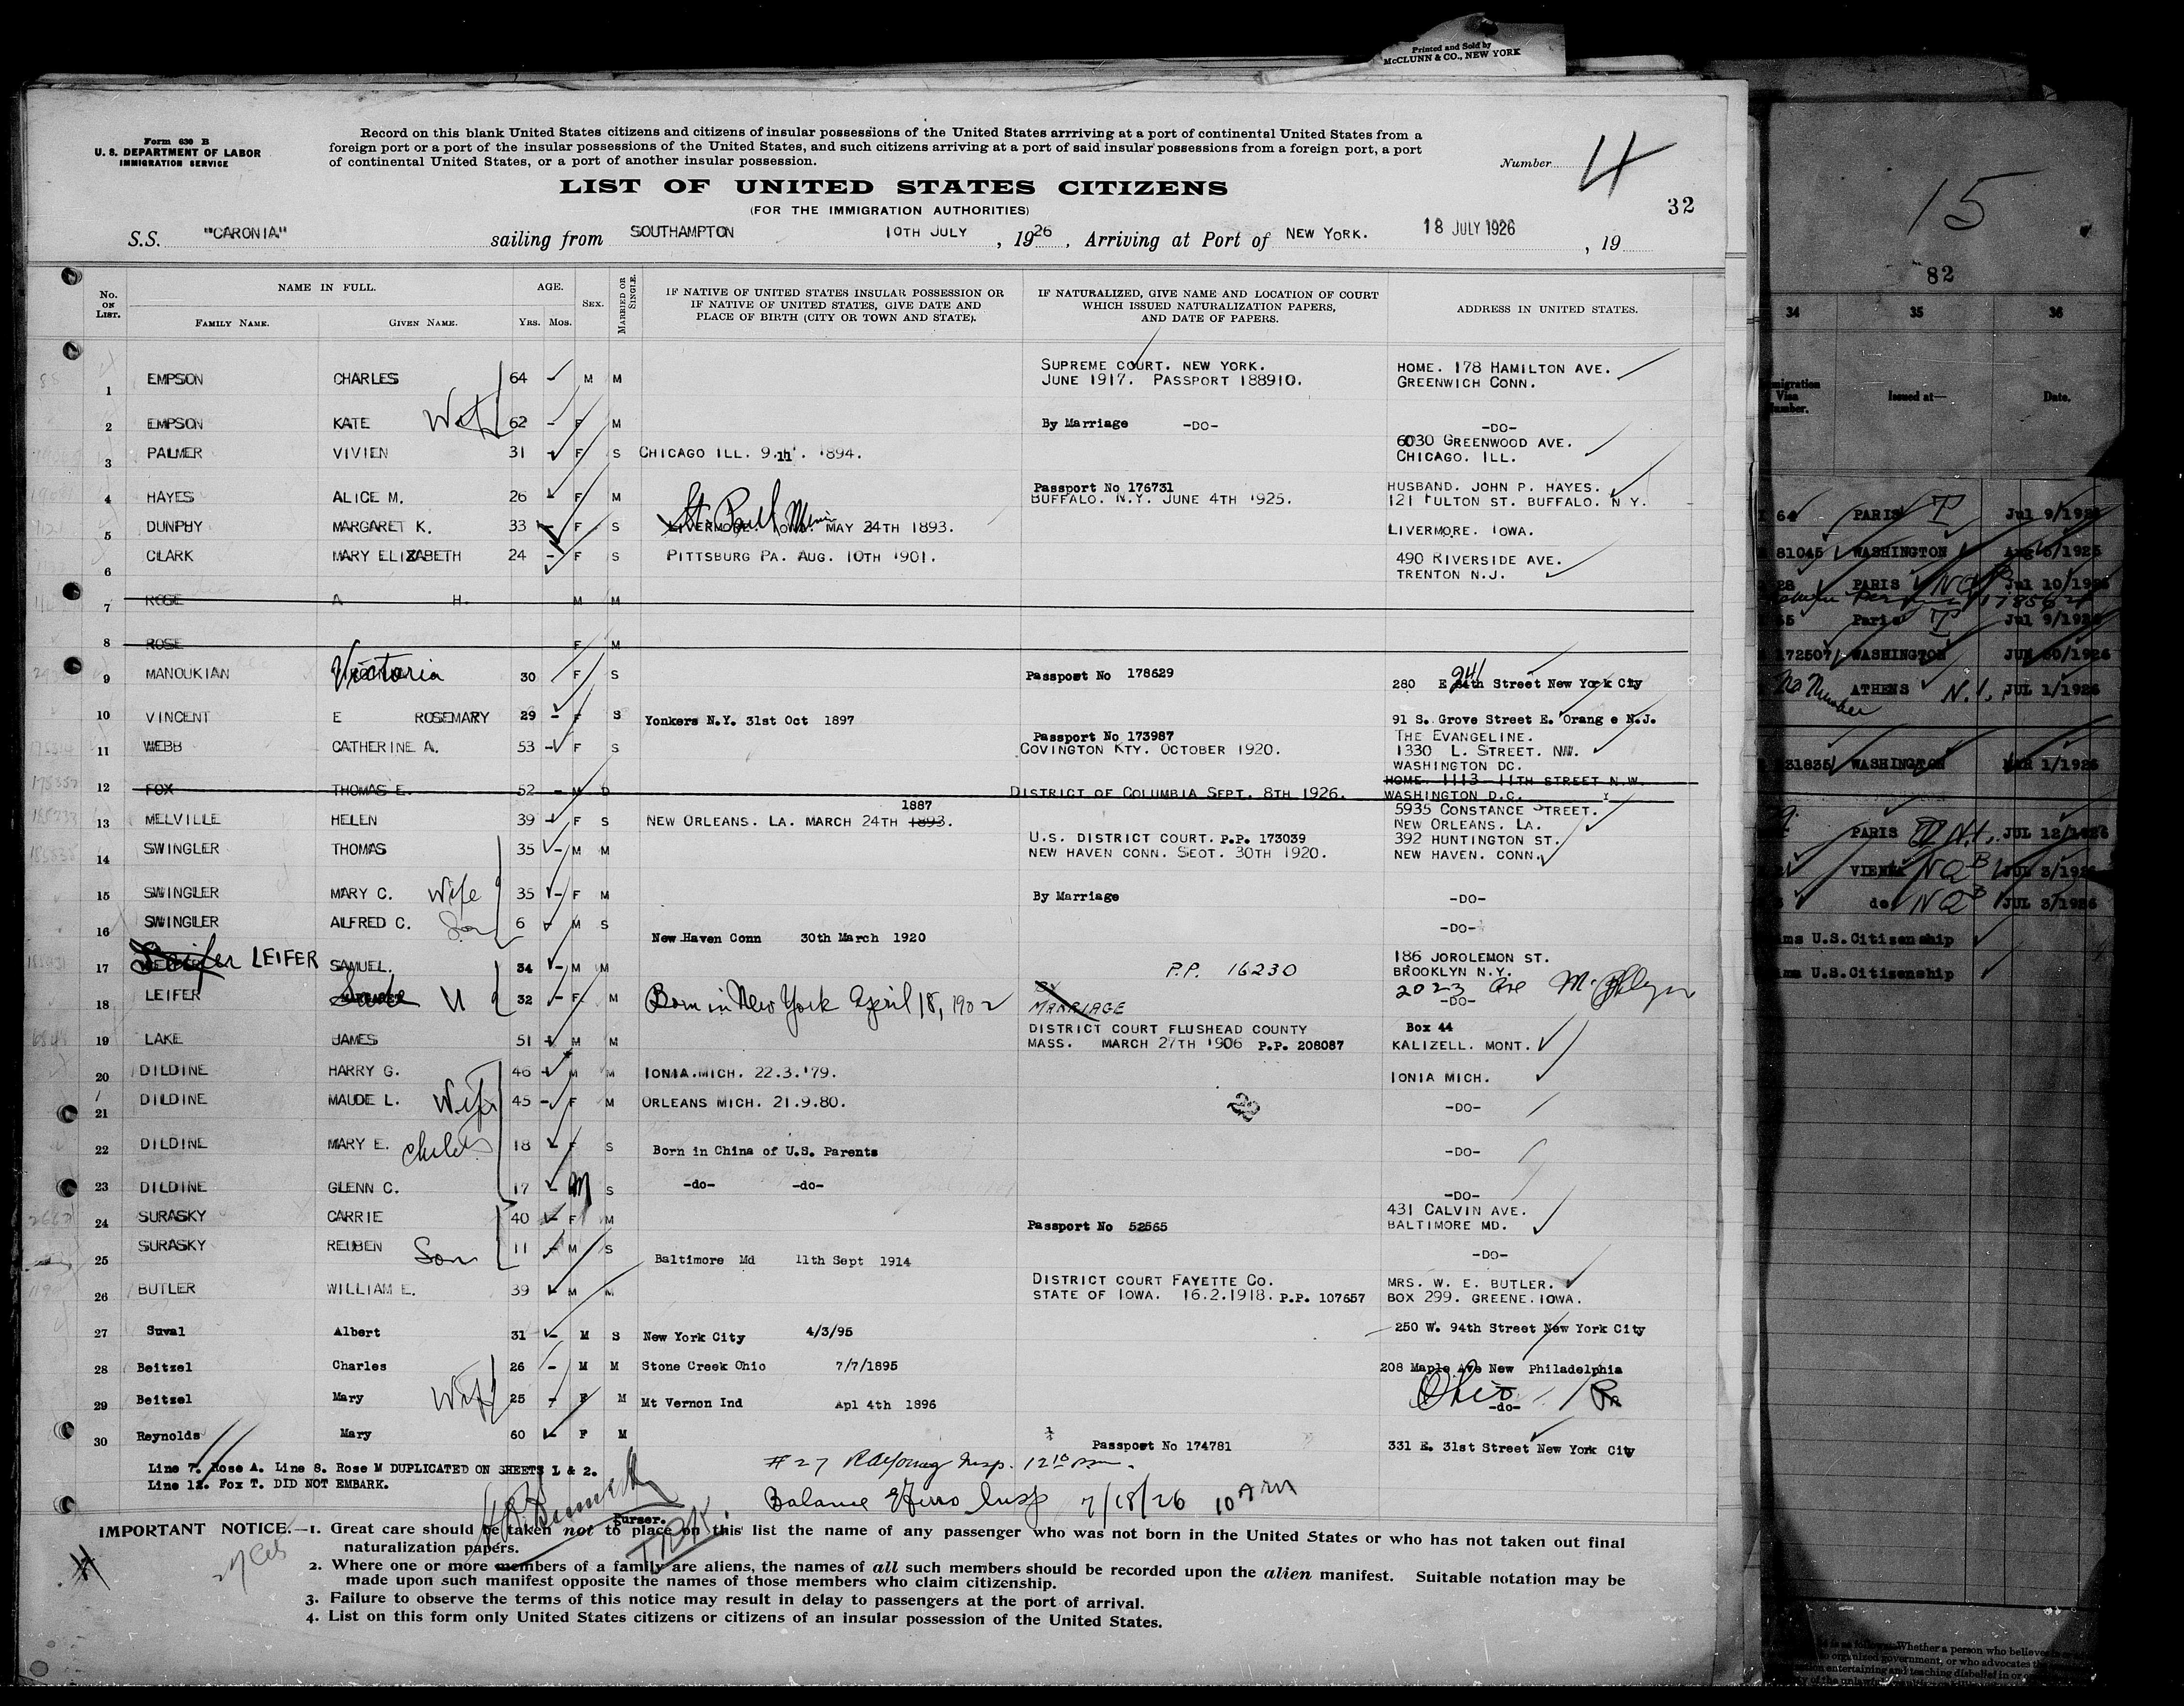 Printed and Sold by
McCLUNN & CO., NEW YORK
Form 630 B
U. S. DEPARTMENT OF LABOR
IMMIGRATION SERVICE
Record on this blank United States citizens and citizens of insular possessions of the United States arrriving at a port of continental United States from a
foreign port or a port of the insular possessions of the United States, and such citizens arriving at a port of said insular possessions from a foreign port, a port
of continental United States, or a port of another insular possession.
Number 4
LIST OF UNITED STATES CITIZENS
(FOR THE IMMIGRATION AUTHORITIES)
32
S.S. "CARONIA" sailing from SOUTHAMPTON 10TH JULY, 1926, Arriving at Port of NEW YORK. 18 JULY 1926, 19
No. on List.
NAME IN FULL.
Family Name. Given Name.
AGE.
Yrs. Mos.
Sex.
Married or Single.
IF NATIVE OF UNITED STATES INSULAR POSSESSION OR
IF NATIVE OF UNITED STATES, GIVE DATE AND
PLACE OF BIRTH (CITY OR TOWN AND STATE).
IF NATURALIZED, GIVE NAME AND LOCATION OF COURT
WHICH ISSUED NATURALIZATION PAPERS,
AND DATE OF PAPERS.
ADDRESS IN UNITED STATES.
1 EMPSON CHARLES 64 - M M SUPREME COURT. NEW YORK. HOME. 178 HAMILTON AVE.
JUNE 1917. PASSPORT 188910. GREENWICH CONN.
2 EMPSON KATE Wife 62 - F M By Marriage -DO- -DO-
3 PALMER VIVIEN 31 - F S CHICAGO ILL. 9.11. 1894. 6030 GREENWOOD AVE.
CHICAGO. ILL.
4 HAYES ALICE M. 26 - F M Passport No 176731 HUSBAND. JOHN P. HAYES.
BUFFALO. N.Y. JUNE 4TH 1925. 121 FULTON ST. BUFFALO. N Y.
5 DUNPHY MARGARET K. 33 - F S LIVERMORE. IOWA. St. Paul Minn MAY 24TH 1893. LIVERMORE. IOWA.
6 CLARK MARY ELIZABETH 24 - F S PITTSBURG PA. AUG. 10TH 1901. 490 RIVERSIDE AVE.
TRENTON N.J.
7 ROSE A H. M M
8 ROSE F M
9 MANOUKIAN Victoria 30 F S Passport No 178629 280 E 24th Street New York City
10 VINCENT E ROSEMARY 29 - F S Yonkers N.Y. 31st Oct 1897 91 S. Grove Street E. Orang e N.J.
11 WEBB CATHERINE A. 53 - F S Passport No 173987 THE EVANGELINE.
COVINGTON KTY. OCTOBER 1920. 1330 L. STREET. NW.
WASHINGTON DC.
12 FOX THOMAS E. 52 - M D DISTRICT OF COLUMBIA SEPT. 8TH 1926. HOME. 1113 11TH STREET N.W.
WASHINGTON D.C.
13 MELVILLE HELEN 39 - F S NEW ORLEANS. LA. MARCH 24TH 1893. 1887 5935 CONSTANCE STREET.
NEW ORLEANS. LA.
14 SWINGLER THOMAS 35 - M M U.S. DISTRICT COURT. P.P. 173039 392 HUNTINGTON ST.
NEW HAVEN CONN. SEOT. 30TH 1920. NEW HAVEN. CONN.
15 SWINGLER MARY C. Wife 35 - F M By Marriage -DO-
16 SWINGLER ALFRED C. Son 6 - M S New Haven Conn 30th March 1920 -DO-
17 LEIFER SAMUEL. 34 - M M P.P. 16230 186 JOROLEMON ST.
BROOKLYN N.Y.
18 LEIFER Sade W 32 - F M Born in New York April 18, 1902 BY MARRIAGE 2023 Ave M. Bklyn
-DO-
19 LAKE JAMES 51 - M M DISTRICT COURT FLUSHEAD COUNTY Box 44
MASS. MARCH 27TH 1906 P.P. 208087 KALIZELL. MONT.
20 DILDINE HARRY G. 46 - M M IONIA.MICH. 22.3.'79. IONIA MICH.
21 DILDINE MAUDE L. Wife 45 - F M ORLEANS MICH. 21.9.80. -DO-
22 DILDINE MARY E. 18 - F S Born in China of U.S. Parents -DO-
23 DILDINE GLENN C. 17 - M S -do- -do- -DO-
24 SURASKY CARRIE 40 - F M Passport No 52565 431 CALVIN AVE.
BALTIMORE MD.
25 SURASKY REUBEN Son 11 - M S Baltimore Md 11th Sept 1914 -DO-
26 BUTLER WILLIAM E. 39 - M M DISTRICT COURT FAYETTE CO. MRS. W. E. BUTLER.
STATE OF IOWA. 16.2.1918. P.P. 107657 BOX 299. GREENE.IOWA.
27 Suval Albert 31 - M S New York City 4/3/95 250 W. 94th Street New York City
28 Beitzel Charles 26 - M M Stone Creek Ohio 7/7/1895 208 Maple Ave New Philadelphia
Ohio Pa
29 Beitzel Mary Wife 25 - F M Mt Vernon Ind Apl 4th 1896 -do-
30 Reynolds Mary 60 - F M Passport No 174781 331 E. 31st Street New York City
Line 7. Rose A. Line 8. Rose M DUPLICATED ON SHEETS 1 & 2.
Line 12. Fox T. DID NOT EMBARK.
Purser.
Balance Insp 7/18/26 10 AM
IMPORTANT NOTICE.—1. Great care should be taken not to place on this list the name of any passenger who was not born in the United States or who has not taken out final
naturalization papers.
2. Where one or more members of a family are aliens, the names of all such members should be recorded upon the alien manifest. Suitable notation may be
made upon such manifest opposite the names of those members who claim citizenship.
3. Failure to observe the terms of this notice may result in delay to passengers at the port of arrival.
4. List on this form only United States citizens or citizens of an insular possession of the United States.
15
82
34 35 36
Issued at— Date.
64 PARIS T Jul 9/1926
81045 WASHINGTON
PARIS Jul 10/1926
Paris T Jul 9/1926
172507 WASHINGTON JUN 30/1926
No Number ATHENS JUL 1/1926
31835 WASHINGTON MAR 1/1926
PARIS JUL 12/1926
VIENNA NQB JUL 3/1926
do NQB JUL 3/1926
U.S.Citizenship
U.S.Citizenship